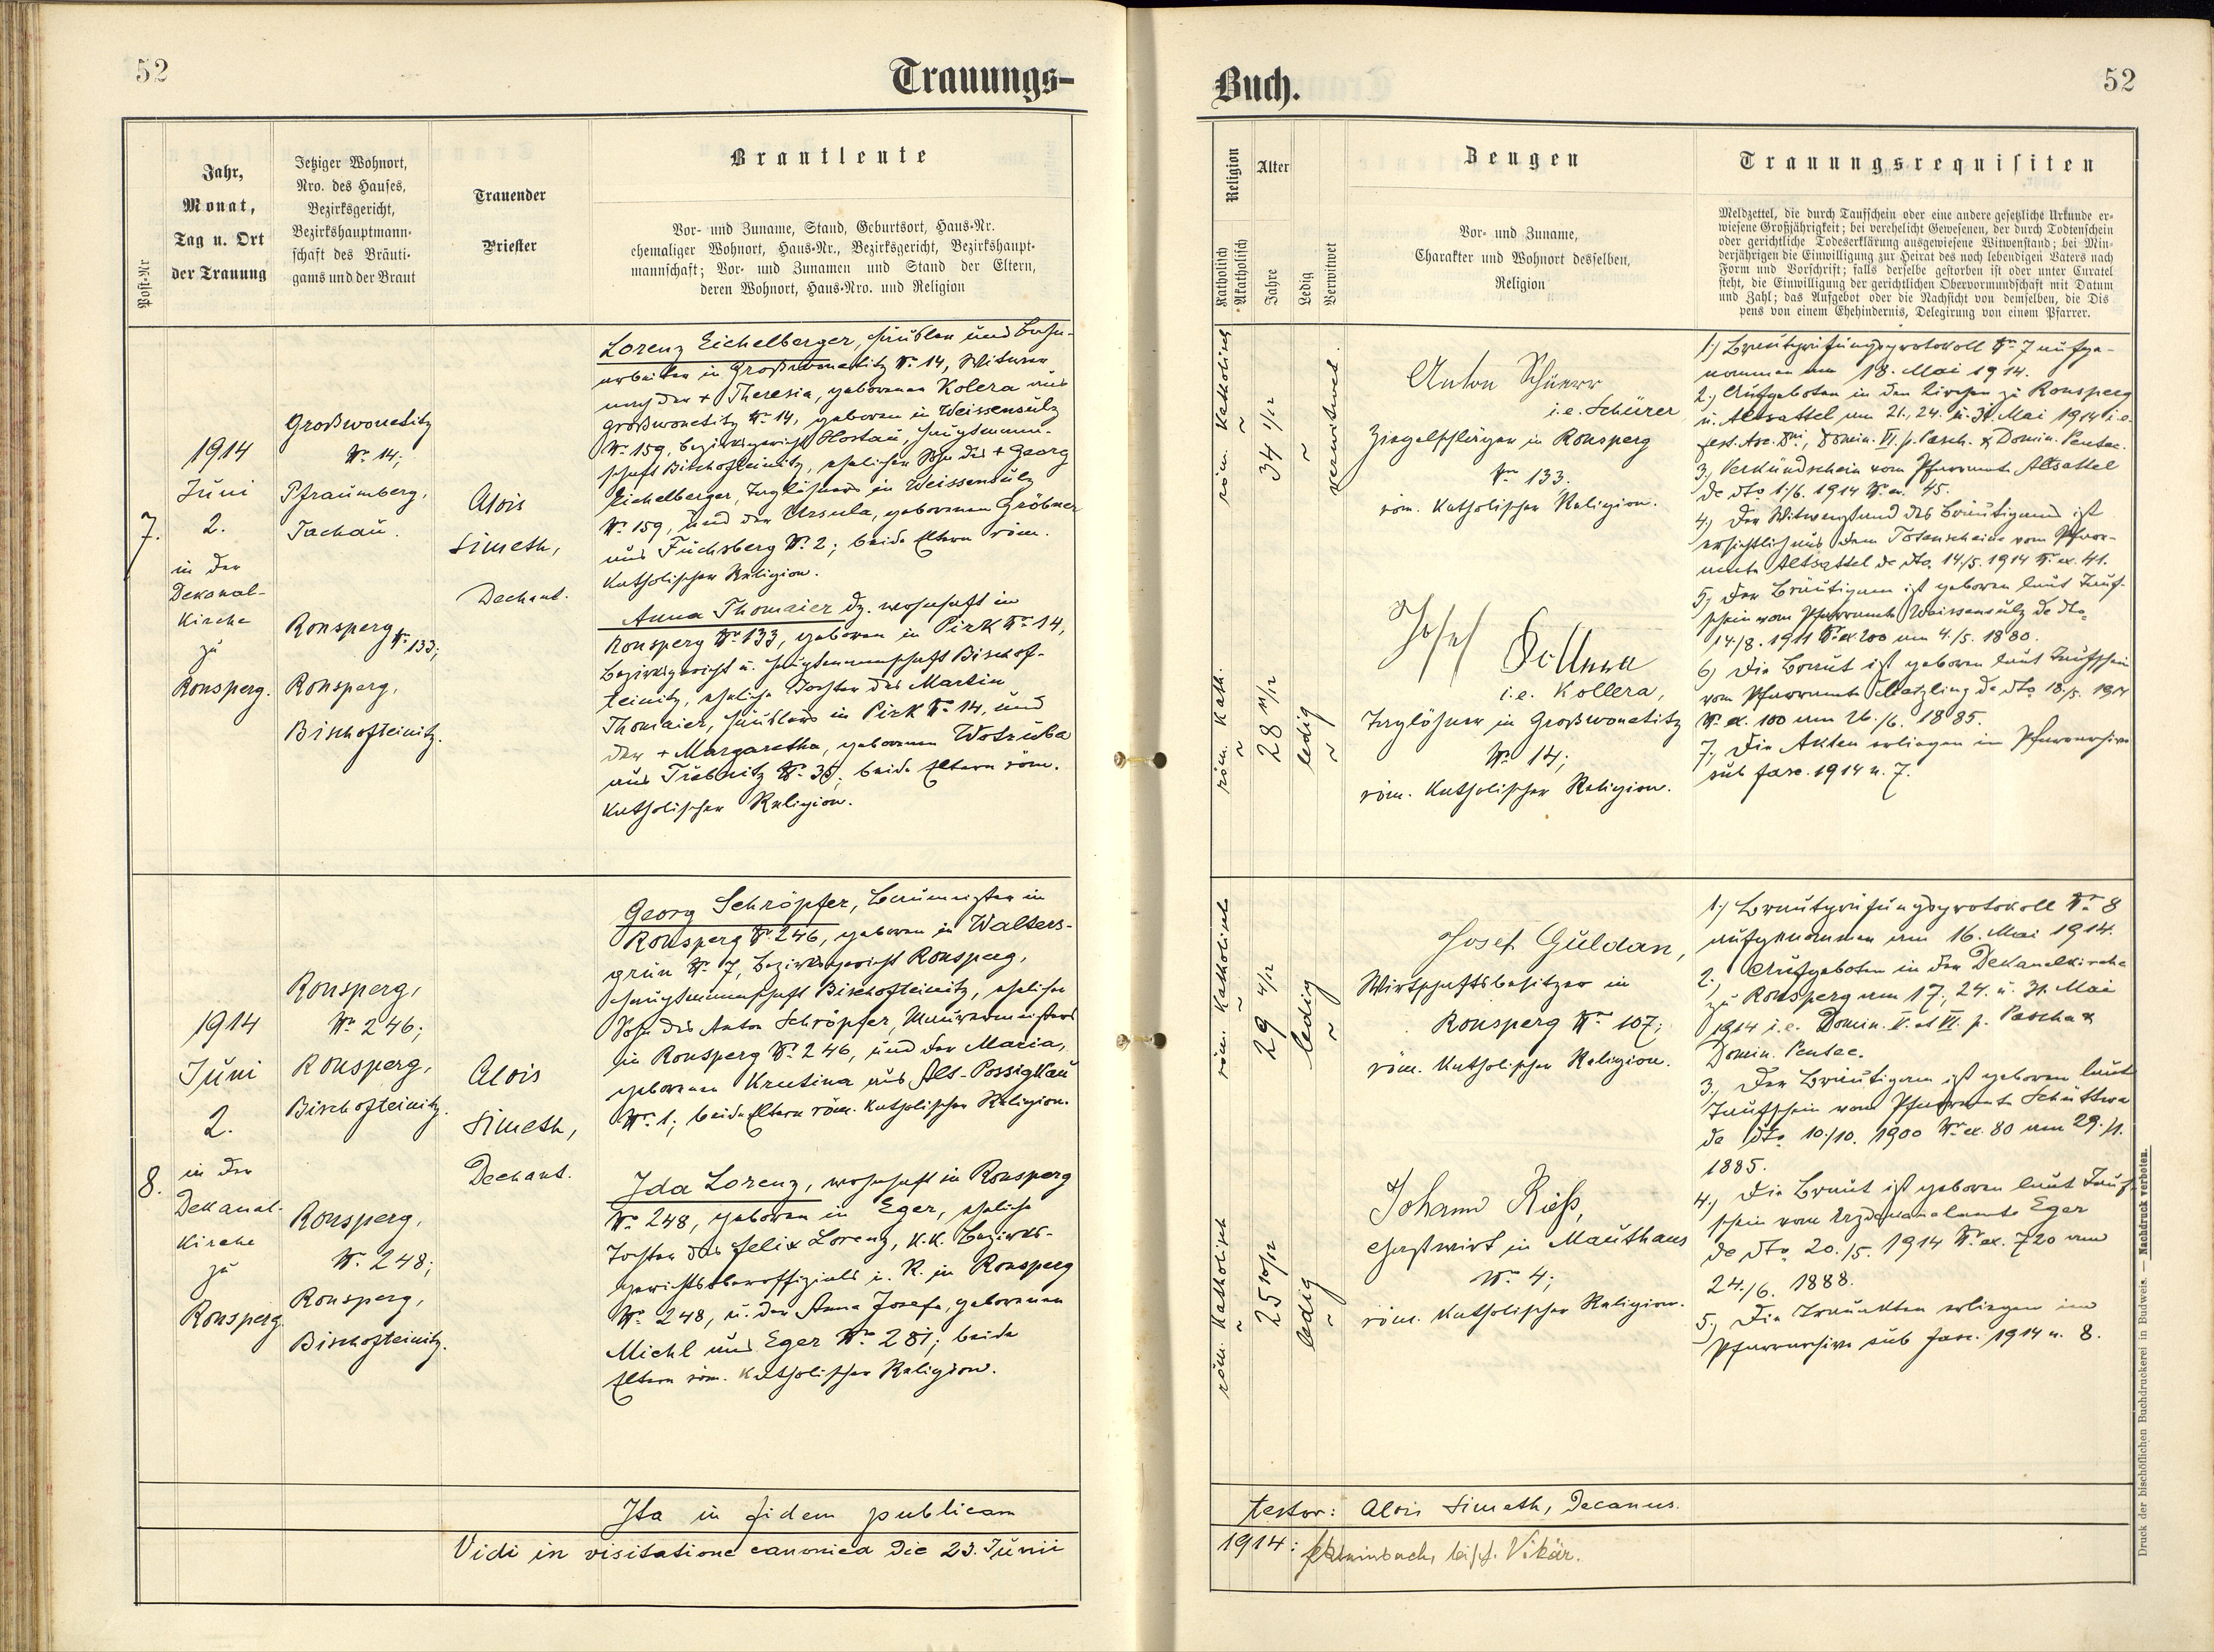 52
Trauungs-
Post-Nr
Jahr,
Monat,
Tag u. Ort
der Trauung
Jetziger Wohnort,
Nro. des Hauses,
Bezirksgericht,
Bezirkshauptmann-
schaft des Bräuti-
gams und der Braut
Trauender
Priester
Brautleute
Vor- und Zuname, Stand, Geburtsort, Haus-Nr.
ehemaliger Wohnort, Haus-Nr., Bezirksgericht, Bezirkshaupt-
mannschaft; Vor- und Zunamen und Stand der Eltern,
deren Wohnort, Haus-Nro. und Religion
7.
1914
Juni
2.
in der
Dekanal-
Kirche
zu
Ronsperg.
Großwonetitz
Nr. 14;
Pfraumberg,
Tachau.
Ronsperg Nr. 133;
Ronsperg,
Bischofteinitz.
Alois
Simeth,
Dechant.
Lorenz Eichelberger, Häusler und Bahn-
arbeiter in Großwonetitz Nr. 14, Witwer
nach der + Theresia, geborenen Kolera aus
Großwonetitz Nr. 14, geboren in Weissensulz
Nr. 159, Bezirksgericht Hostau, Hauptmann-
schaft Bischofteinitz, ehelicher Sohn des + Georg
Eichelberger, Taglöhners in Weissensulz
Nr. 159, und der Ursula, geborenen Gröbner
aus Fuchsberg Nr. 2; beide Eltern röm.
katholischer Religion.
Anna Thomaier dz. wohnhaft in
Ronsperg Nr. 133, geboren in Pirk Nr. 14,
Bezirksgericht u. Hauptmannschaft Bischof-
teinitz, eheliche Tochter des Martin
Thomaier, Häuslers in Pirk Nr. 14, und
der + Margaretha, geborenen Wotruba
aus Trebnitz Nr. 35; beide Eltern röm.
katholischer Religion.
8.
1914
Juni
2.
in der
Dekanal-
Kirche
zu
Ronsperg.
Ronsperg,
Nr. 246;
Ronsperg,
Bischofteinitz.
Ronsperg,
Nr. 248;
Ronsperg,
Bischofteinitz.
Alois
Simeth,
Dechant.
Georg Schröpfer, Baumeister in
Ronsperg Nr. 246, geboren in Walters-
grün Nr. 7, Bezirksgericht Ronsperg,
Hauptmannschaft Bischofteinitz, ehelicher
Sohn des Anton Schröpfer, Maurermeisters
in Ronsperg Nr. 246, und der Maria,
geborenen Krutina aus Alt-Possigkau
Nr. 1; beide Eltern röm. katholischer Religion.
Ida Lorenz, wohnhaft in Ronsperg
Nr. 248, geboren in Eger, eheliche
Tochter des Felix Lorenz, k.k. Bezirks-
gerichtsoberoffizials i. R. in Ronsperg
Nr. 248, u. der Anna Josefa, geborenen
Michl aus Eger Nr. 281; beide
Eltern röm. katholischer Religion.
Ita in fidem publicam
Vidi in visitatione canonica die 23. Junii
Buch.
52
Religion
Katholisch
Akatholisch
Alter
Jahre
Ledig
Verwitwet
Zeugen
Vor- und Zuname,
Charakter und Wohnort desselben,
Religion
Trauungsrequisiten
Meldzettel, die durch Taufschein oder eine andere gesetzliche Urkunde er-
wiesene Großjährigkeit; bei verehelicht Gewesenen, der durch Todtenschein
oder gerichtliche Todeserklärung ausgewiesene Witwenstand; bei Min-
derjährigen die Einwilligung zur Heirat des noch lebendigen Vaters nach
Form und Vorschrift; falls derselbe gestorben ist oder unter Curatel
steht, die Einwilligung der gerichtlichen Obervormundschaft mit Datum
und Zahl; das Aufgebot oder die Nachsicht von demselben, die Dis
pens von einem Ehehindernis, Delegirung von einem Pfarrer.
röm. Katholisch
34 1/12
verwitwet.
röm. Kath.
28 11/12
ledig
Anton Schürer
i.e. Schürer
Ziegelschläger in Ronsperg
Nr. 133.
röm. katholischer Religion.
Josef Kollera
i.e. Kollera,
Taglöhner in Großwonetitz
Nr. 14;
röm. katholischer Religion.
1.) Brautprüfungsprotokoll Nr. 7 aufge-
nommen am 18. Mai 1914.
2.) Aufgeboten in den Kirchen zu Ronsperg
u. Altsattel am 21., 24. u. 31. Mai 1914 i.e.
fest. Asc. Dni, Domin. VI. p. Pasch. & Domin. Pentec.
3.) Verkündschein vom Pfarramte Altsattel
de dto 1./6. 1914 Nr. ex. 45.
4.) Der Witwenstand des Bräutigams ist
ersichtlich aus dem Totenscheine vom Pfarr-
amte Altsattel de dto. 14./5. 1914 Nr. ex. 41.
5.) Der Bräutigam ist geboren laut Tauf-
schein vom Pfarramte Weissensulz de dto
14./8. 1911 Nr. ex 200 am 4./5. 1880.
6.) Die Braut ist geboren laut Taufschein
vom Pfarramte Metzling de dto 18./5. 1914
Nr. ex. 100 am 26./6. 1885.
7.) Die Akten erliegen im Pfarrarchive
sub fasc. 1914 n. 7.
röm. Katholisch
29 4/12
ledig
röm. Katholisch
25 10/12
ledig
Josef Guldan,
Wirtschaftsbesitzer in
Ronsperg Nr. 107;
röm. katholischer Religion.
Johann Rieß,
Gastwirt in Mauthaus
Nr. 4;
röm. katholischer Religion.
1.) Brautprüfungsprotokoll Nr. 8
aufgenommen am 16. Mai 1914.
2.) Aufgeboten in der Dekanalkirche
zu Ronsperg am 17., 24. u. 31. Mai
1914 i.e. Domin. V. et VI. p. Pascha &
Domin. Pentec.
3.) Der Bräutigam ist geboren laut
Taufschein vom Pfarramte Schüttwa
de dto 10./10. 1900 Nr. ex. 80 am 29./1.
1885.
4.) Die Braut ist geboren laut Tauf-
schein vom Erzdekanalamte Eger
de dto 20./5. 1914 Nr. ex. 720 am
24./6. 1888.
5.) Die Trauakten erliegen im
Pfarrarchive sub fasc. 1914 n. 8.
testor: Alois Simeth, Decanus.
1914: bisch. Vikär.
Druck der bischöflichen Buchdruckerei in Budweis. — Nachdruck verboten.